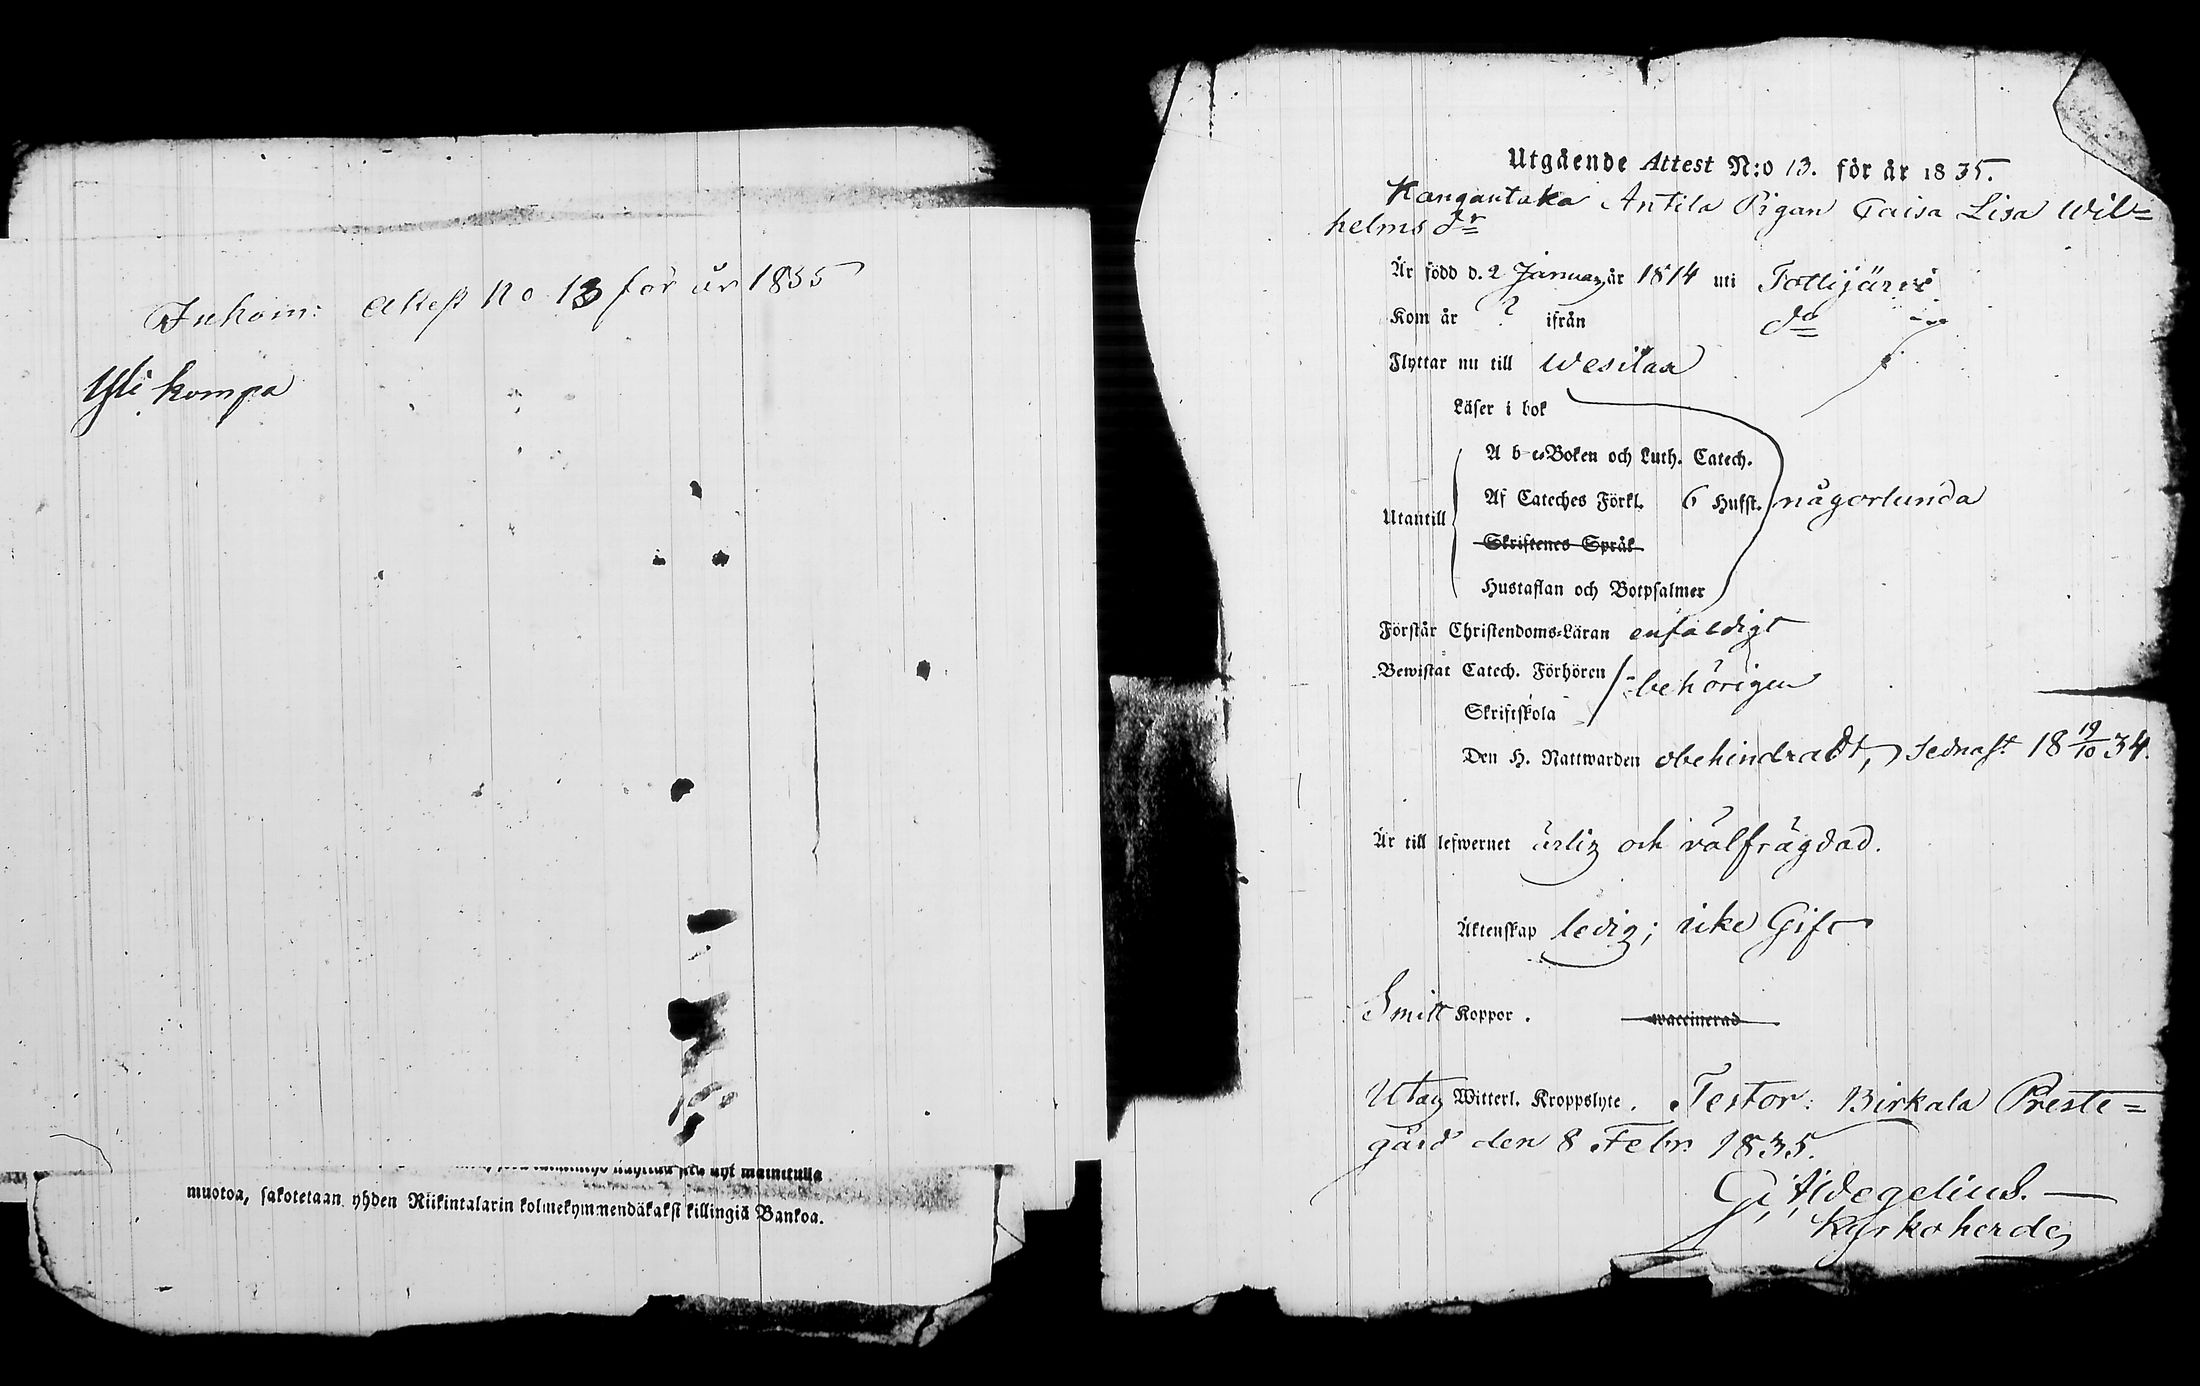 Inkom: Attest No 13 för år 1835
Yli kompa
muotoa, sakotetaan yhden Riikintalarin kolmekymmendäkaksi killingiä Bankoa.
Utgående Attest N:o 13. för år 1835.
Kangantaka Antila Pigan Caisa Lisa Wil=
helms dr
Är född d. 2 Januar, år 1814 uti Tottijärvi
Kom år ? ifrån do
Flyttar nu till Wesilax
Läser i bok
A b c-Boken och Luth. Catech.
Af Cateches Förkl. 6 Hufst. någorlunda
Utantill
Skriftenes Språk
Hustaflan och Botpsalmer
Förstår Christendoms-Läran enfaldigt
Bewistat Catech. Förhören behörigen
Skriftskola
Den H. Nattwarden obehindradt, sednast 18 19/10 34.
Är till lefwernet ärlig och välfrägdad.
Äktenskap ledig; icke Gift
Smitt Koppor. waccinerad
Utan Witterl. Kroppslyte. Testor: Birkala Preste=
gård den 8 Febr. 1835.
Kyrkoherde